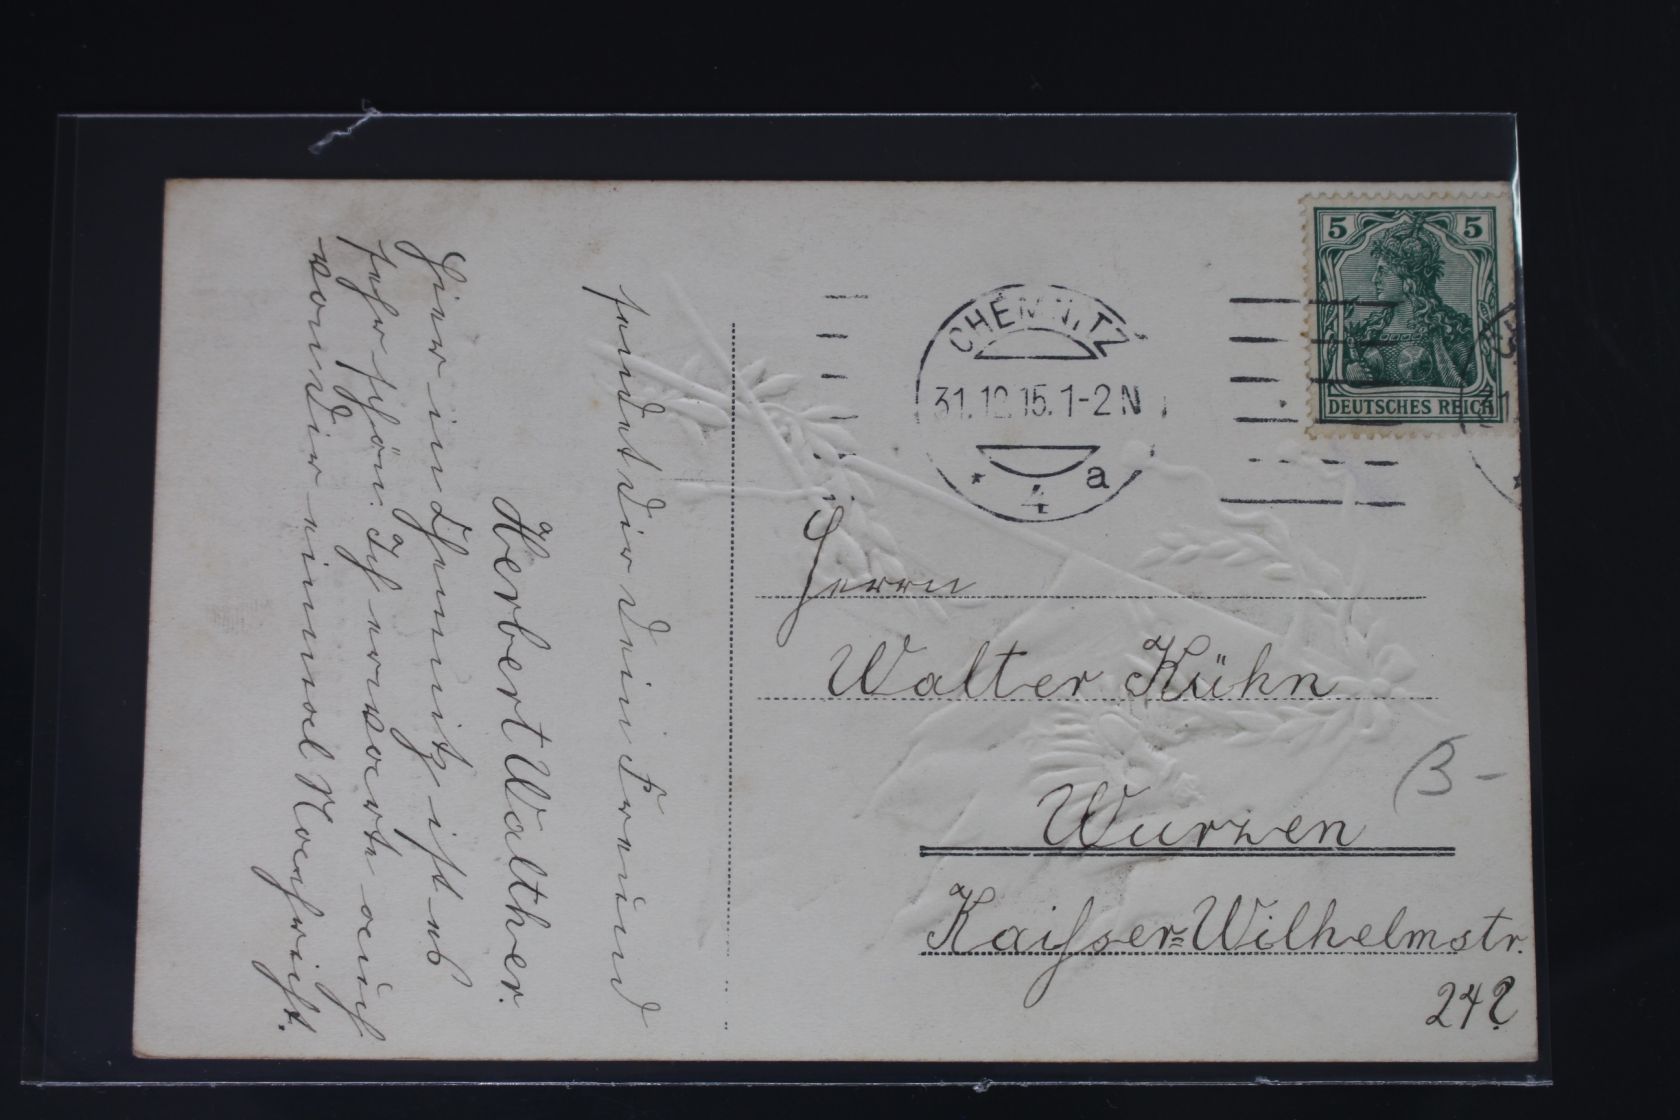 sendet Dir Dein Freund
Herbert Walther.
Hier in Chemnitz ist es
sehr schön. Ich erwarte auch
von Dir einmal Nachricht.
5 5
DEUTSCHES REICH
CHEMNITZ
31.12.15. 1-2 N
* 4 a
Herrn
Walter Kühn
Wurzen
Kaisser-Wilhelmstr.
24